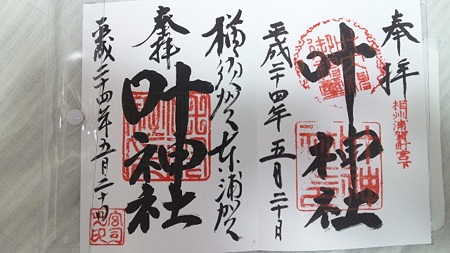 奉拝
相州浦賀
叶神社
平成二十四年五月二十日
横須賀東浦賀
奉拝
叶神社
平成二十四年五月二十日
宮司之印